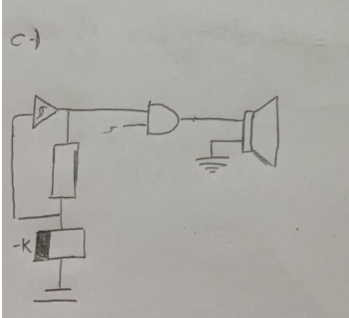 C-)
-K